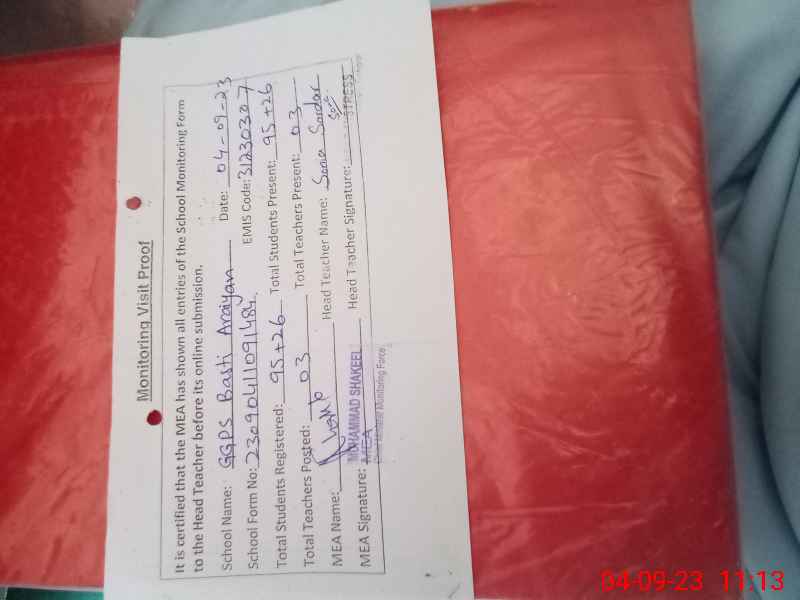 Monitoring Visit Proof
It is certified that the MEA has shown all entries of the School Monitoring Form
to the Head Teacher before its online submission.
School Name: GGPS Basti Araiyan Date: 04-09-23
School Form No: 23090411091484 EMIS Code: 31230307
Total Students Registered: 95+26 Total Students Present: 95+26
Total Teachers Posted: 03 Total Teachers Present: 03
MEA Name: Head Teacher Name: Sonia Sardar
MUHAMMAD SHAKEEL
MEA Signature: MEA Head Teacher Signature:
Chief Minister Monitoring Force
04-09-23 11:13